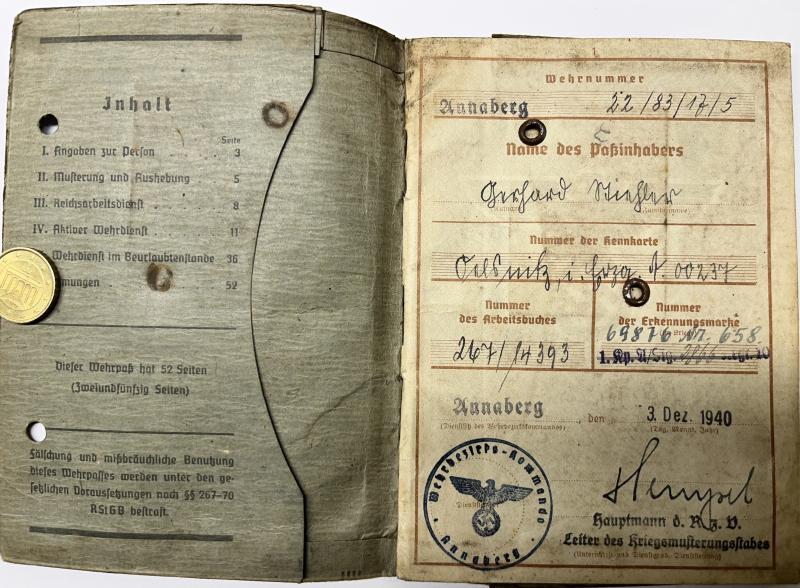 Inhalt
Seite
I. Angaben zur Person 3
II. Musterung und Aushebung 5
III. Reichsarbeitsdienst 8
IV. Aktiver Wehrdienst 11
Wehrdienst im Beurlaubtenstande 36
52
Dieser Wehrpaß hat 52 Seiten
(Zweiundfünfzig Seiten)
Fälschung und mißbräuchliche Benutzung
dieses Wehrpasses werden unter den ge-
setzlichen Voraussetzungen nach §§ 267-70
RStGB bestraft.
1
Wehrnummer
Annaberg 22/83/17/5
Name des Paßinhabers
Gerhard Stiehler
Nummer der Kennkarte
Oelsnitz, i. Erzg. A. 00237
Nummer
des Arbeitsbuches
267/14393
Nummer
der Erkennungsmarke
658
1. Kp.
Annaberg, den 3. Dez. 1940
(Dienstsitz des Wehrbezirkskommandos) (Tag, Monat, Jahr)
Wehrbezirks-Kommando
Annaberg
Hempel
Hauptmann d. R. z. V.
Leiter des Kriegsmusterungsstabes